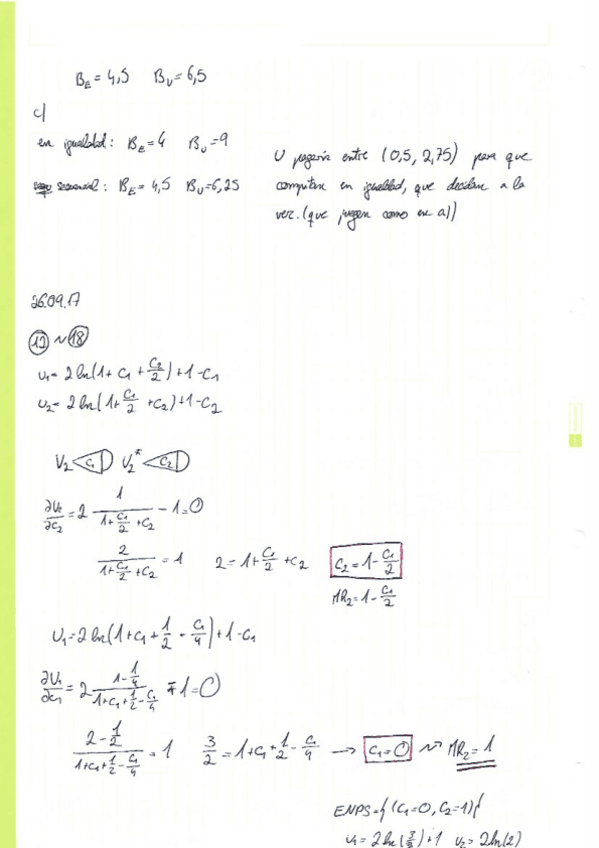 B_E = 4,5 B_U = 6,5
c)
en igualdad: B_E = 4 B_U = 9
secuencial: B_E = 4,5 B_U = 6,25
U pagaría entre (0,5, 2,75) para que
compitan en igualdad, que decidan a la
vez. (que jueguen como en a))
26.09.17
~ 18
U₁ = 2 ln(1 + C₁ + C₂/2) + 1 - C₁
U₂ = 2 ln(1 + C₁/2 + C₂) + 1 - C₂
C₁ C₂
∂U₂/∂C₂ = 2 1/(1 + C₁/2 + C₂) - 1 = 0
2/(1 + C₁/2 + C₂) = 1 2 = 1 + C₁/2 + C₂ C₂ = 1 - C₁/2
MR₂ = 1 - C₁/2
U₁ = 2 ln(1 + C₁ + 1/2 - C₁/4) + 1 - C₁
∂U₁/∂C₁ = 2 (1 - 1/4)/(1 + C₁ + 1/2 - C₁/4) - 1 = 0
(2 - 1/2)/(1 + C₁ + 1/2 - C₁/4) = 1 3/2 = 1 + C₁ + 1/2 - C₁/4 → C₁ = 0 ~> MR₂ = 1
ENPS = {(C₁ = 0, C₂ = 1)}
U₁ = 2 ln(3/2) + 1 U₂ = 2 ln(2)